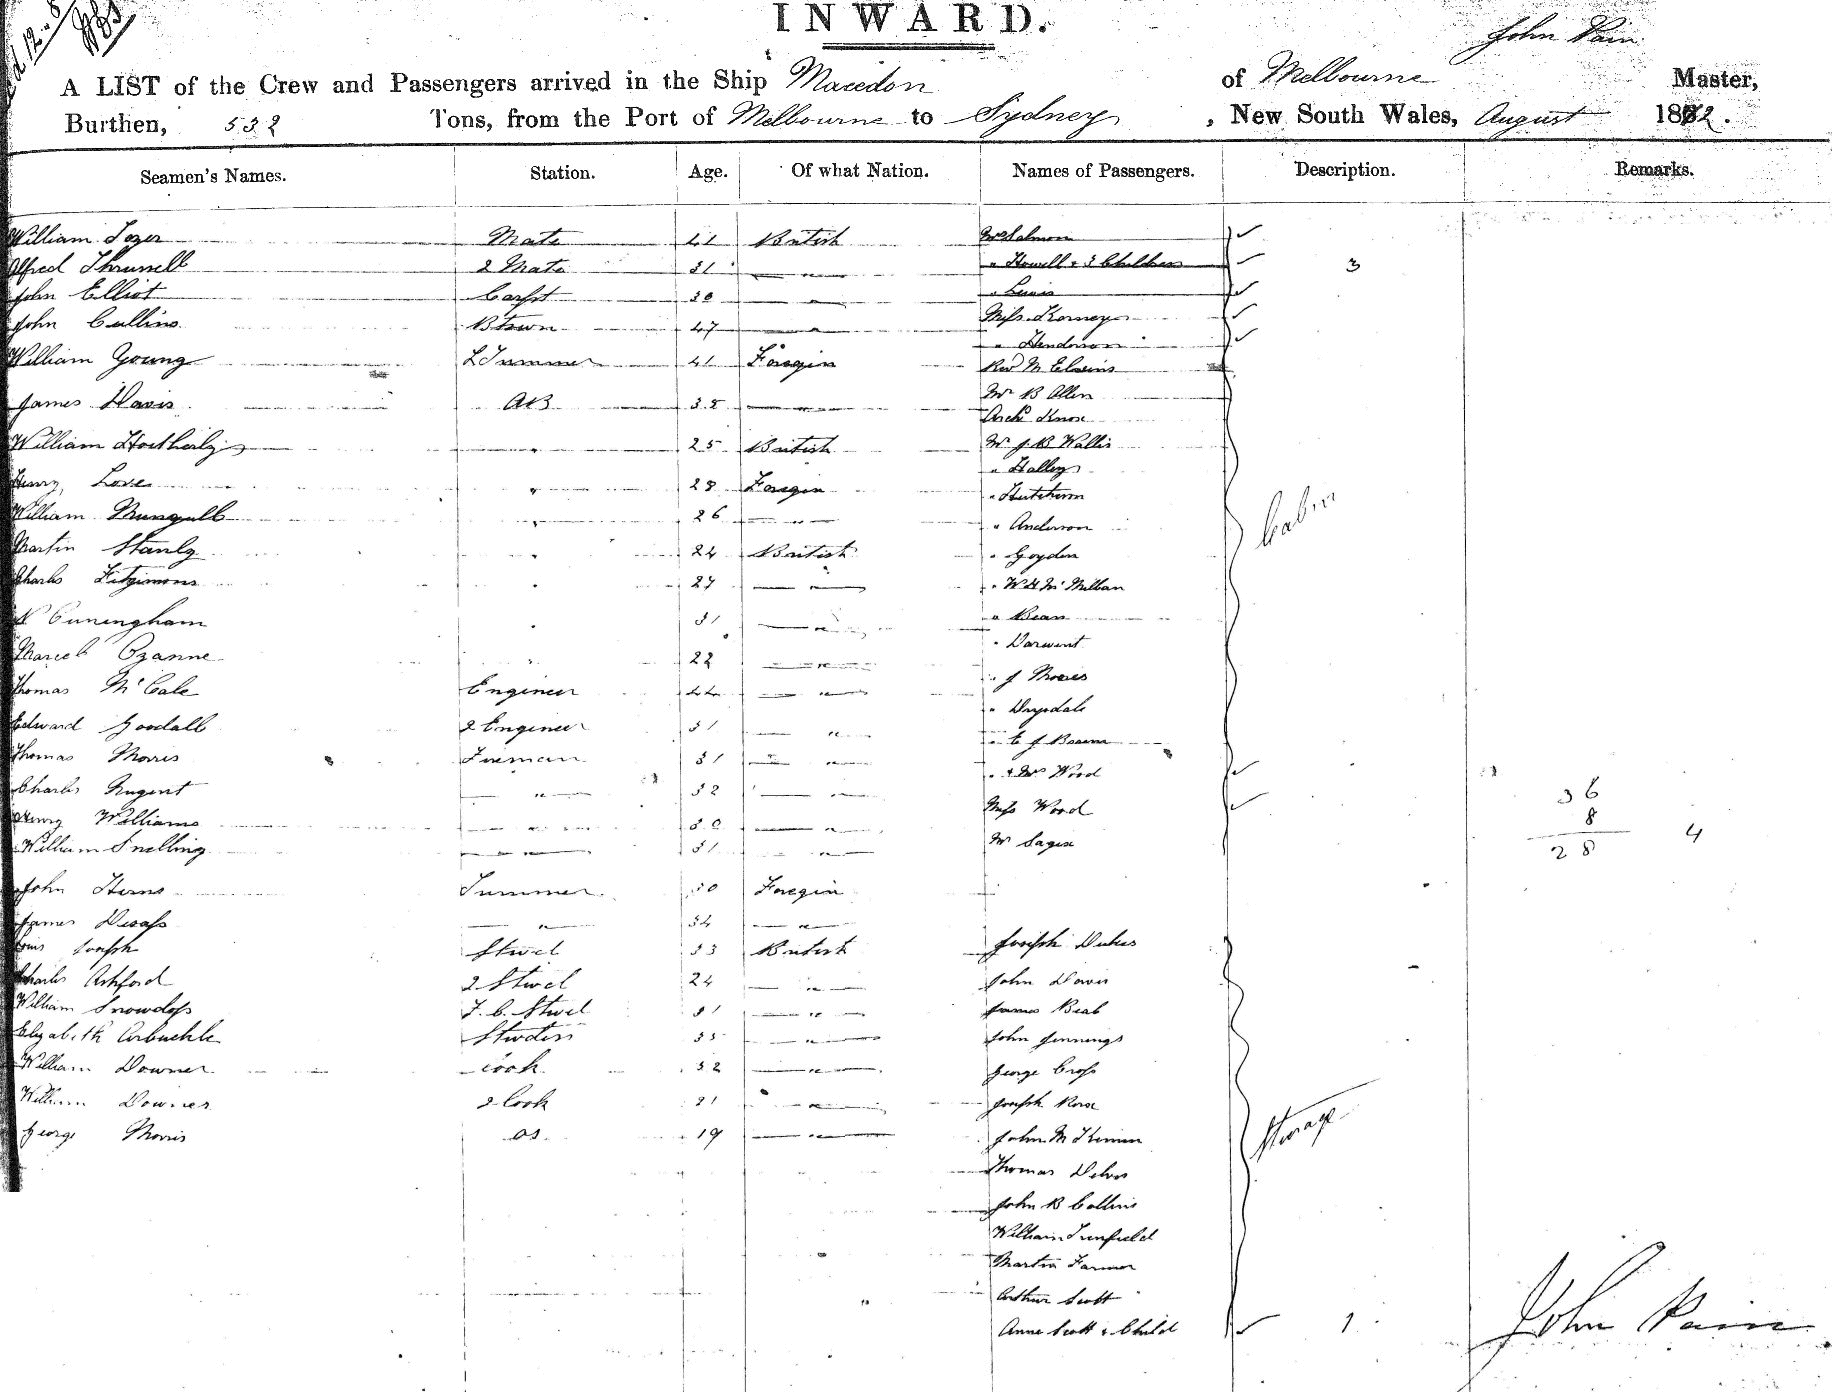 INWARD.
John Pain
A LIST of the Crew and Passengers arrived in the Ship Macedon of Melbourne Master,
Burthen, 532 Tons, from the Port of Melbourne to Sydney, New South Wales, August 1872.
Seamen's Names. Station. Age. Of what Nation. Names of Passengers. Description. Remarks.
William Tozer Mate 41 British Mrs Salmon
Alfred Thrussell 2 Mate 31 " " Howell & 3 Children 3
John Elliot Carpt 30 " " Lewis
John Cullins Btswn 47 " Miss Korney
" Henderson
William Young L Trimmer 41 Foregin Revd M Elwins
Mr B Allen
James Davis AB 38 Archd Knox
William Hoetherly " 25 British Mr J B Wallis
" Halley
Henry Love " 28 Foregin " Hutchison
William Mungull " 26 " " Anderson
Martin Stanly " 24 British " Goyden
Charls Fitzimons " 27 " " W H McMillan
Cuningham " 31 " " Bean
" Darwent
Marcel Ozanne " 22 "
Thomas McCale Engineer 44 " " J Moores
" Drysdale
Edward Goodall 2 Engineer 31 "
Thomas Morris Fireman 31 " " & Mrs Wood
Charls Nugent " 32 " Miss Wood
Henry Williams " 30 "
William Snelling " 31 " Mr
36
8
28 4
John Herns Trimmer 30 Foregin
James " 34 "
Joseph Stwd 33 British Joseph Dukes
Charls Ashford 2 Stwd 24 " John Davis
William F. C. Stwd 31 " James Beal
Elizabeth Arbuckle Stwdess 35 " John Jennings
William Downer Cook 52 " George Cross
William Downer 2 Cook 21 " Joseph Rose
George Morris OS 19 " John M
Thomas
John B Collins
William Turnfield
Martin Farmer
Arthur Scott
Anne Scott & Child 1
Cabin
Sterage
John Pain